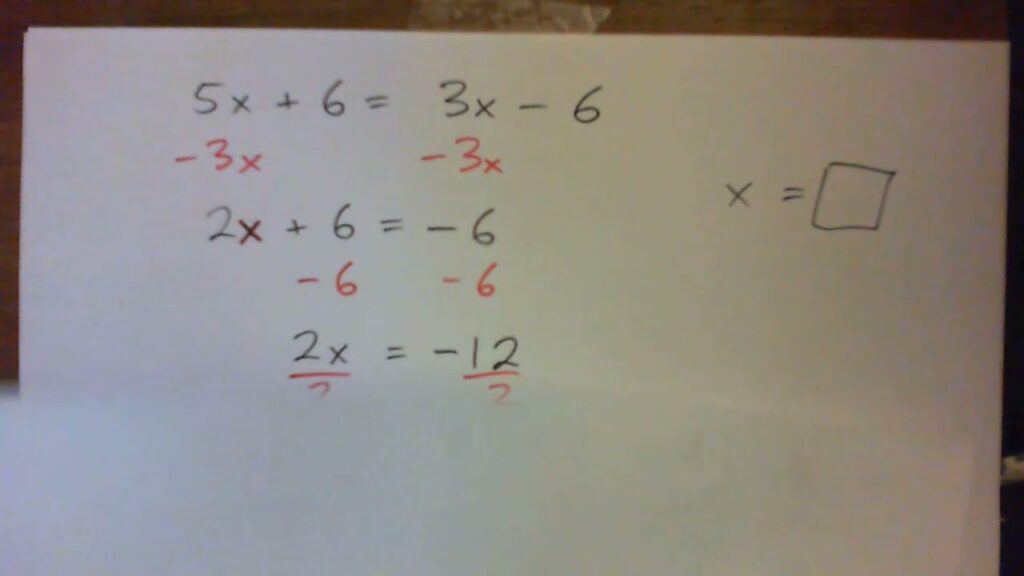 5x + 6 = 3x - 6
-3x -3x
x =
2x + 6 = -6
-6 -6
2x = -12
2 2